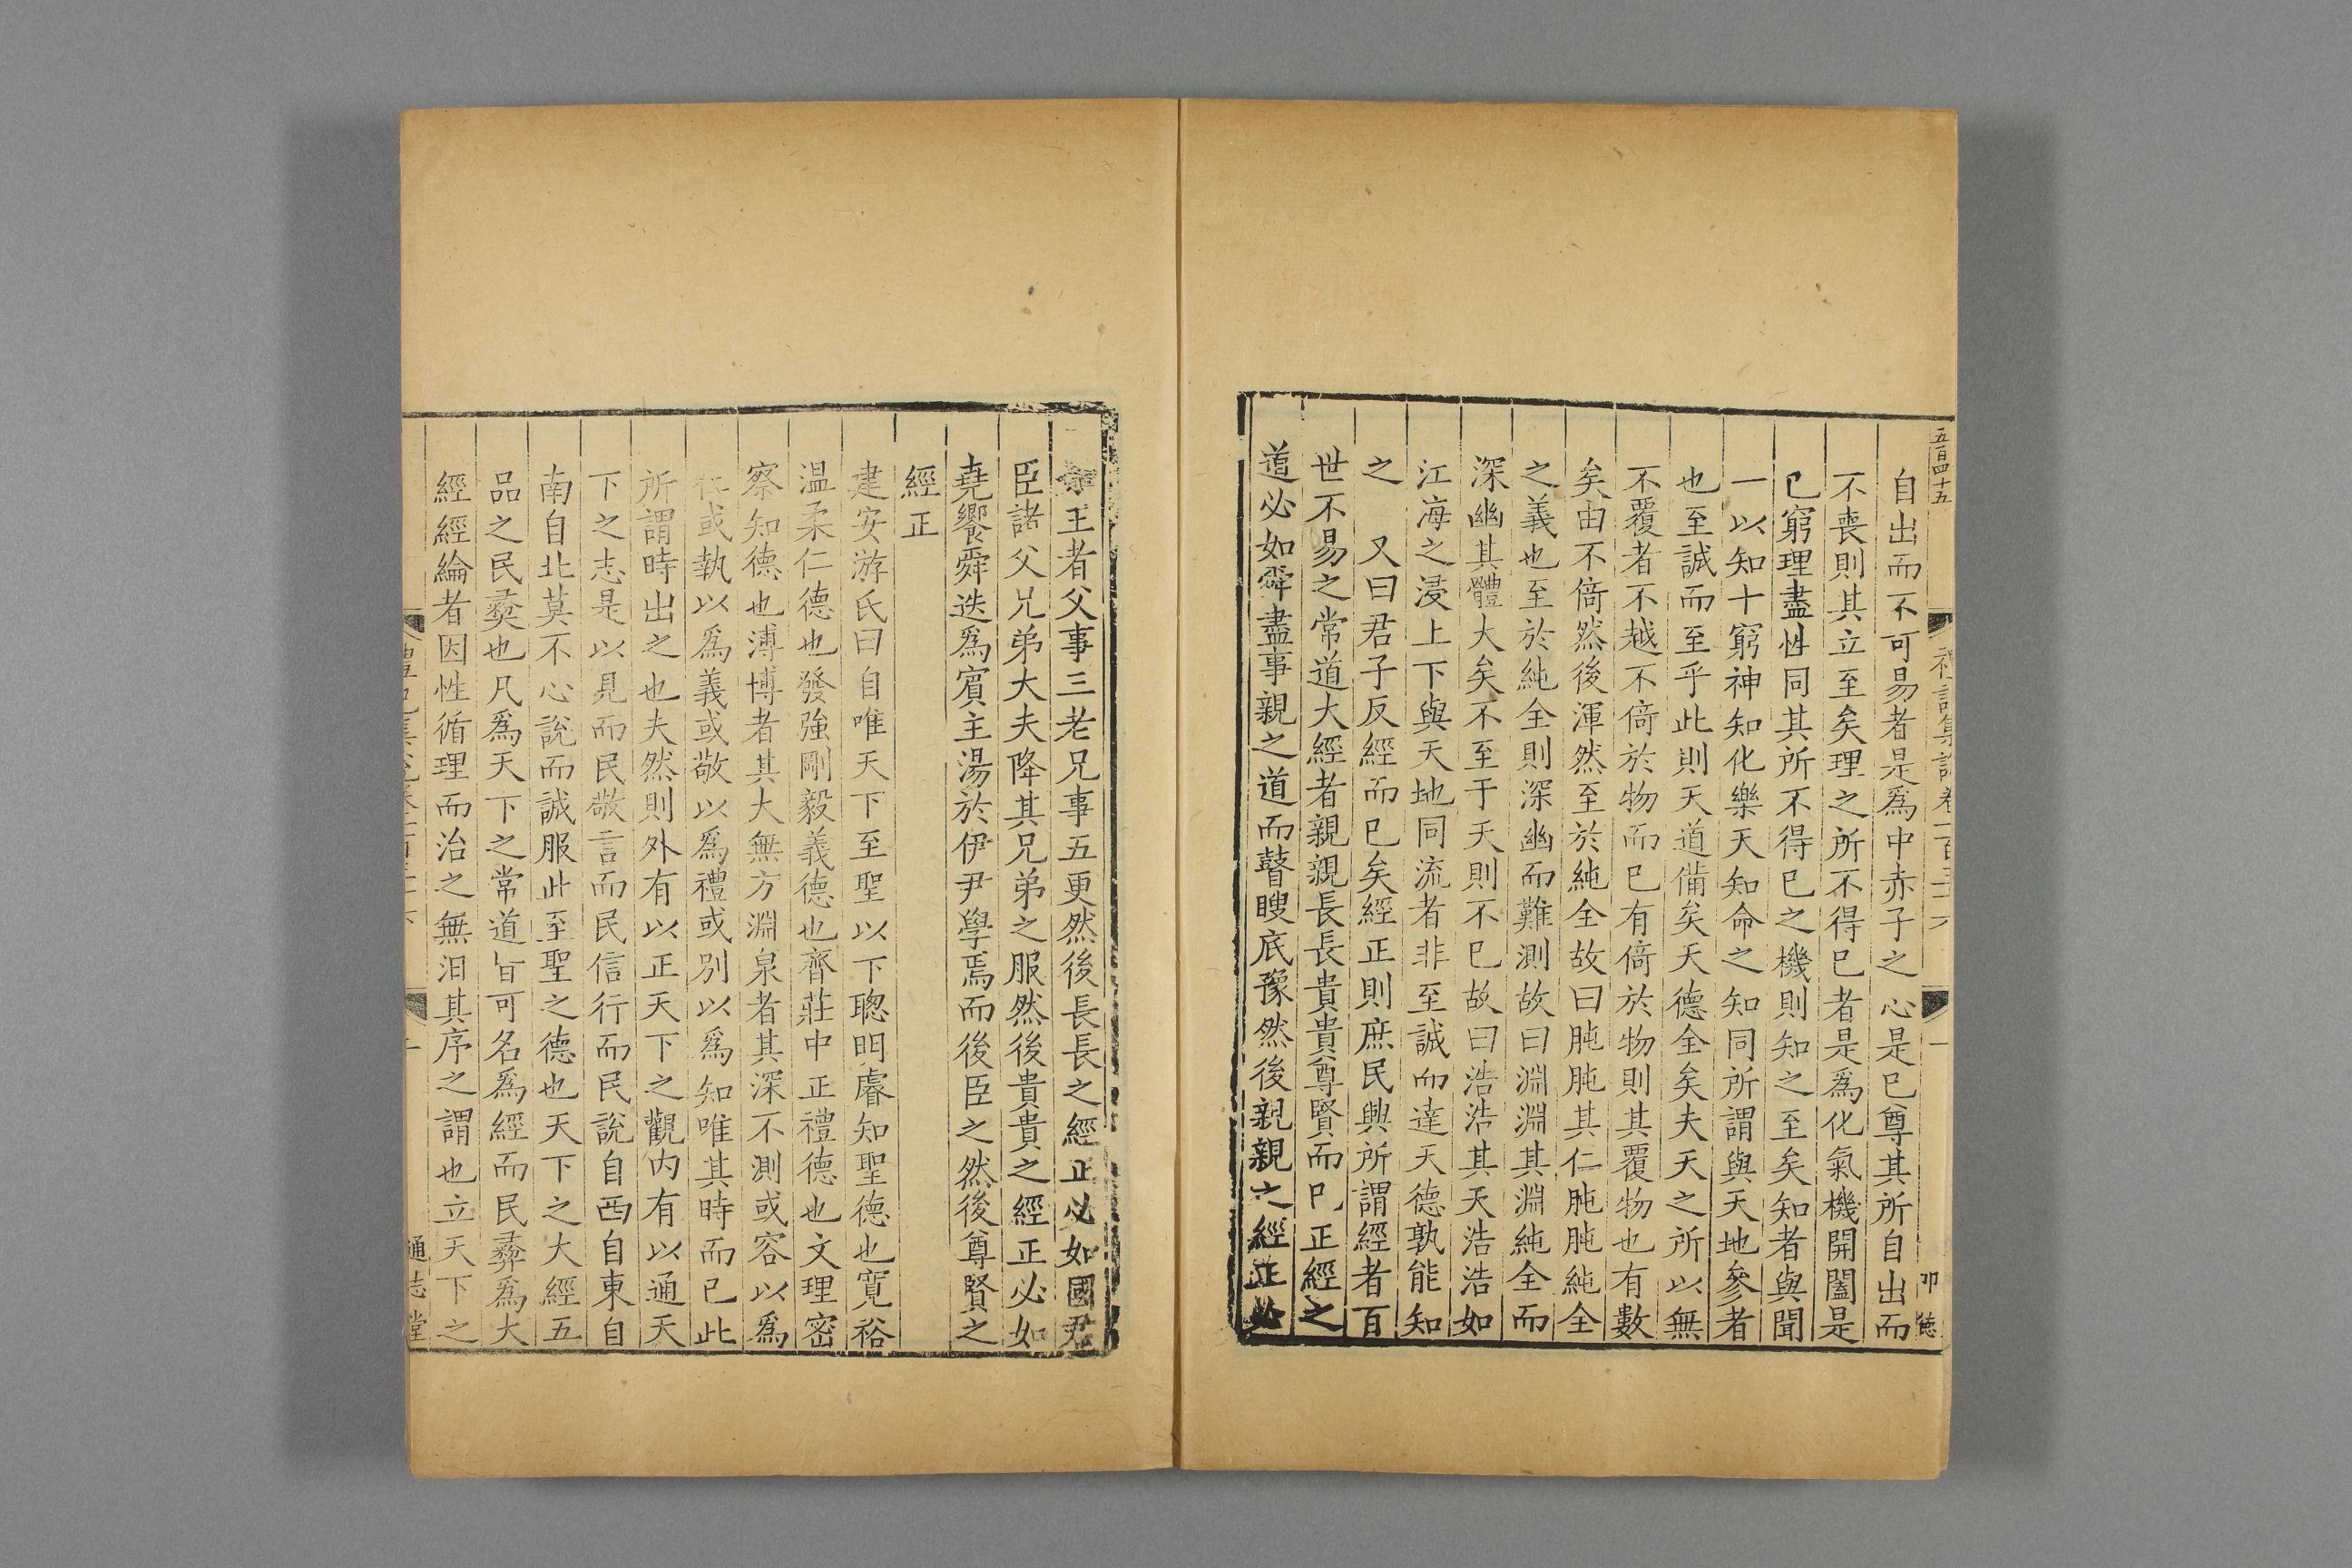 五百四十五
禮記集說卷一百三十六
一
卭德
自出而不可易者是爲中赤子之心是已尊其所自出而
不喪則其立至矣理之所不得已者是爲化氣機開闔是
已窮理盡性同其所不得已之機則知之至矣知者與聞
一以知十窮神知化樂天知命之知同所謂與天地參者
也至誠而至乎此則天道備矣天德全矣夫天之所以無
不覆者不越不倚於物而已有倚於物則其覆物也有數
矣由不倚然後渾然至於純全故曰肫肫其仁肫肫純全
之義也至於純全則深幽而難測故曰淵淵其淵純全而
深幽其體大矣不至于天則不已故曰浩浩其天浩浩如
江海之浸上下與天地同流者非至誠而達天德孰能知
之　又曰君子反經而已矣經正則庶民興所謂經者百
世不易之常道大經者親親長長貴貴尊賢而已正經之
道必如舜盡事親之道而瞽瞍底豫然後親親之經正必
王者父事三老兄事五更然後長長之經正必如國君
臣諸父兄弟大夫降其兄弟之服然後貴貴之經正必如
堯饗舜迭爲賓主湯於伊尹學焉而後臣之然後尊賢之
經正
建安游氏曰自唯天下至聖以下聰明睿知聖德也寛裕
温柔仁德也發強剛毅義德也齊莊中正禮德也文理密
察知德也溥博者其大無方淵泉者其深不測或容以爲
仁或執以爲義或敬以爲禮或別以爲知唯其時而已此
所謂時出之也夫然則外有以正天下之觀内有以通天
下之志是以見而民敬言而民信行而民說自西自東自
南自北莫不心說而誠服此至聖之德也天下之大經五
品之民彛也凡爲天下之常道皆可名爲經而民彛爲大
經經綸者因性循理而治之無汨其序之謂也立天下之
通志堂